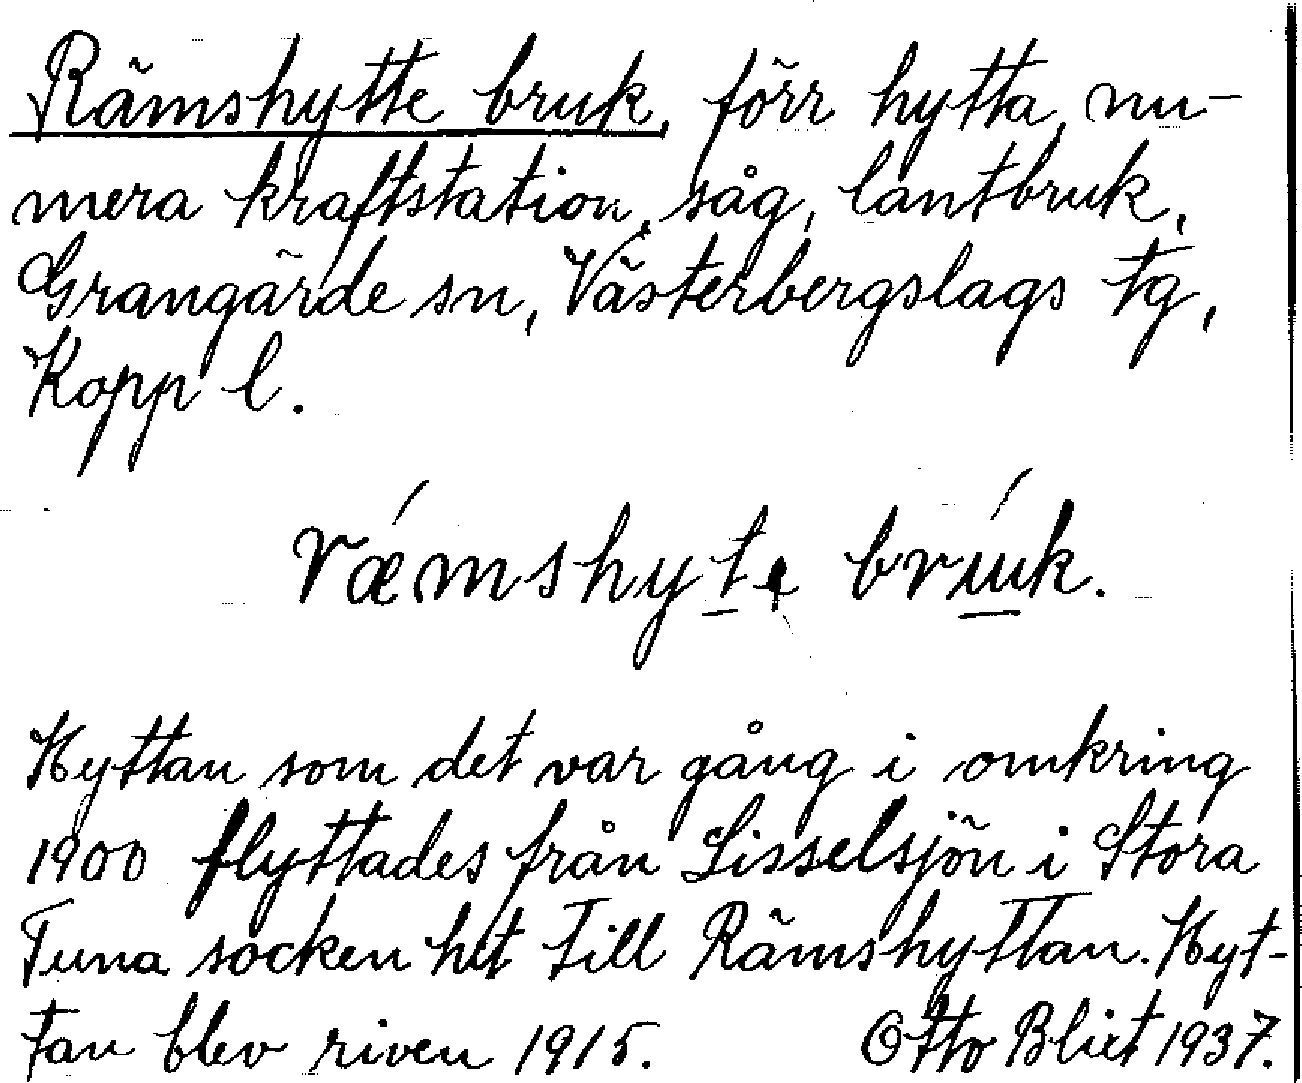 Rämshytte bruk, förr hytta, nu-
mera kraftstation, såg, lantbruk,
Grangärde sn, Västerbergslags tg,
Kopp l.
rǽmshyte brúuk.
Hyttan som det var gång i omkring
1900 flyttades från Lisselsjön i Stora
Tuna socken hit till Rämshyttan. Hyt-
tan blev riven 1915. Otto Blixt 1937.